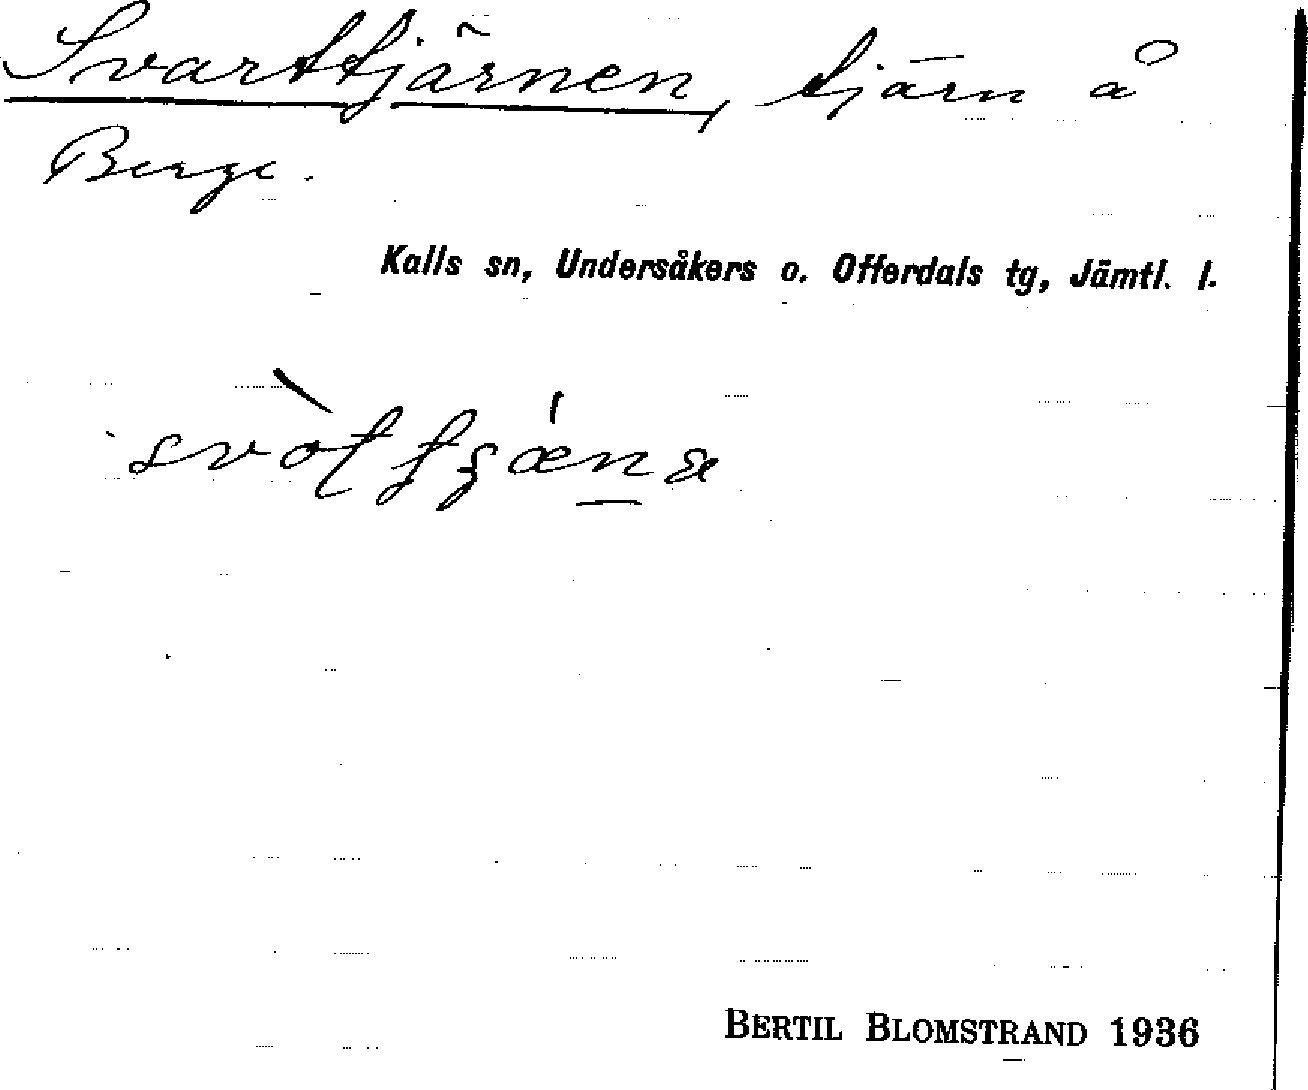 Svarttjärnen, tjärn å
Berge.
Kalls sn, Undersåkers o. Offerdals tg, Jämtl. l.
BERTIL BLOMSTRAND 1936